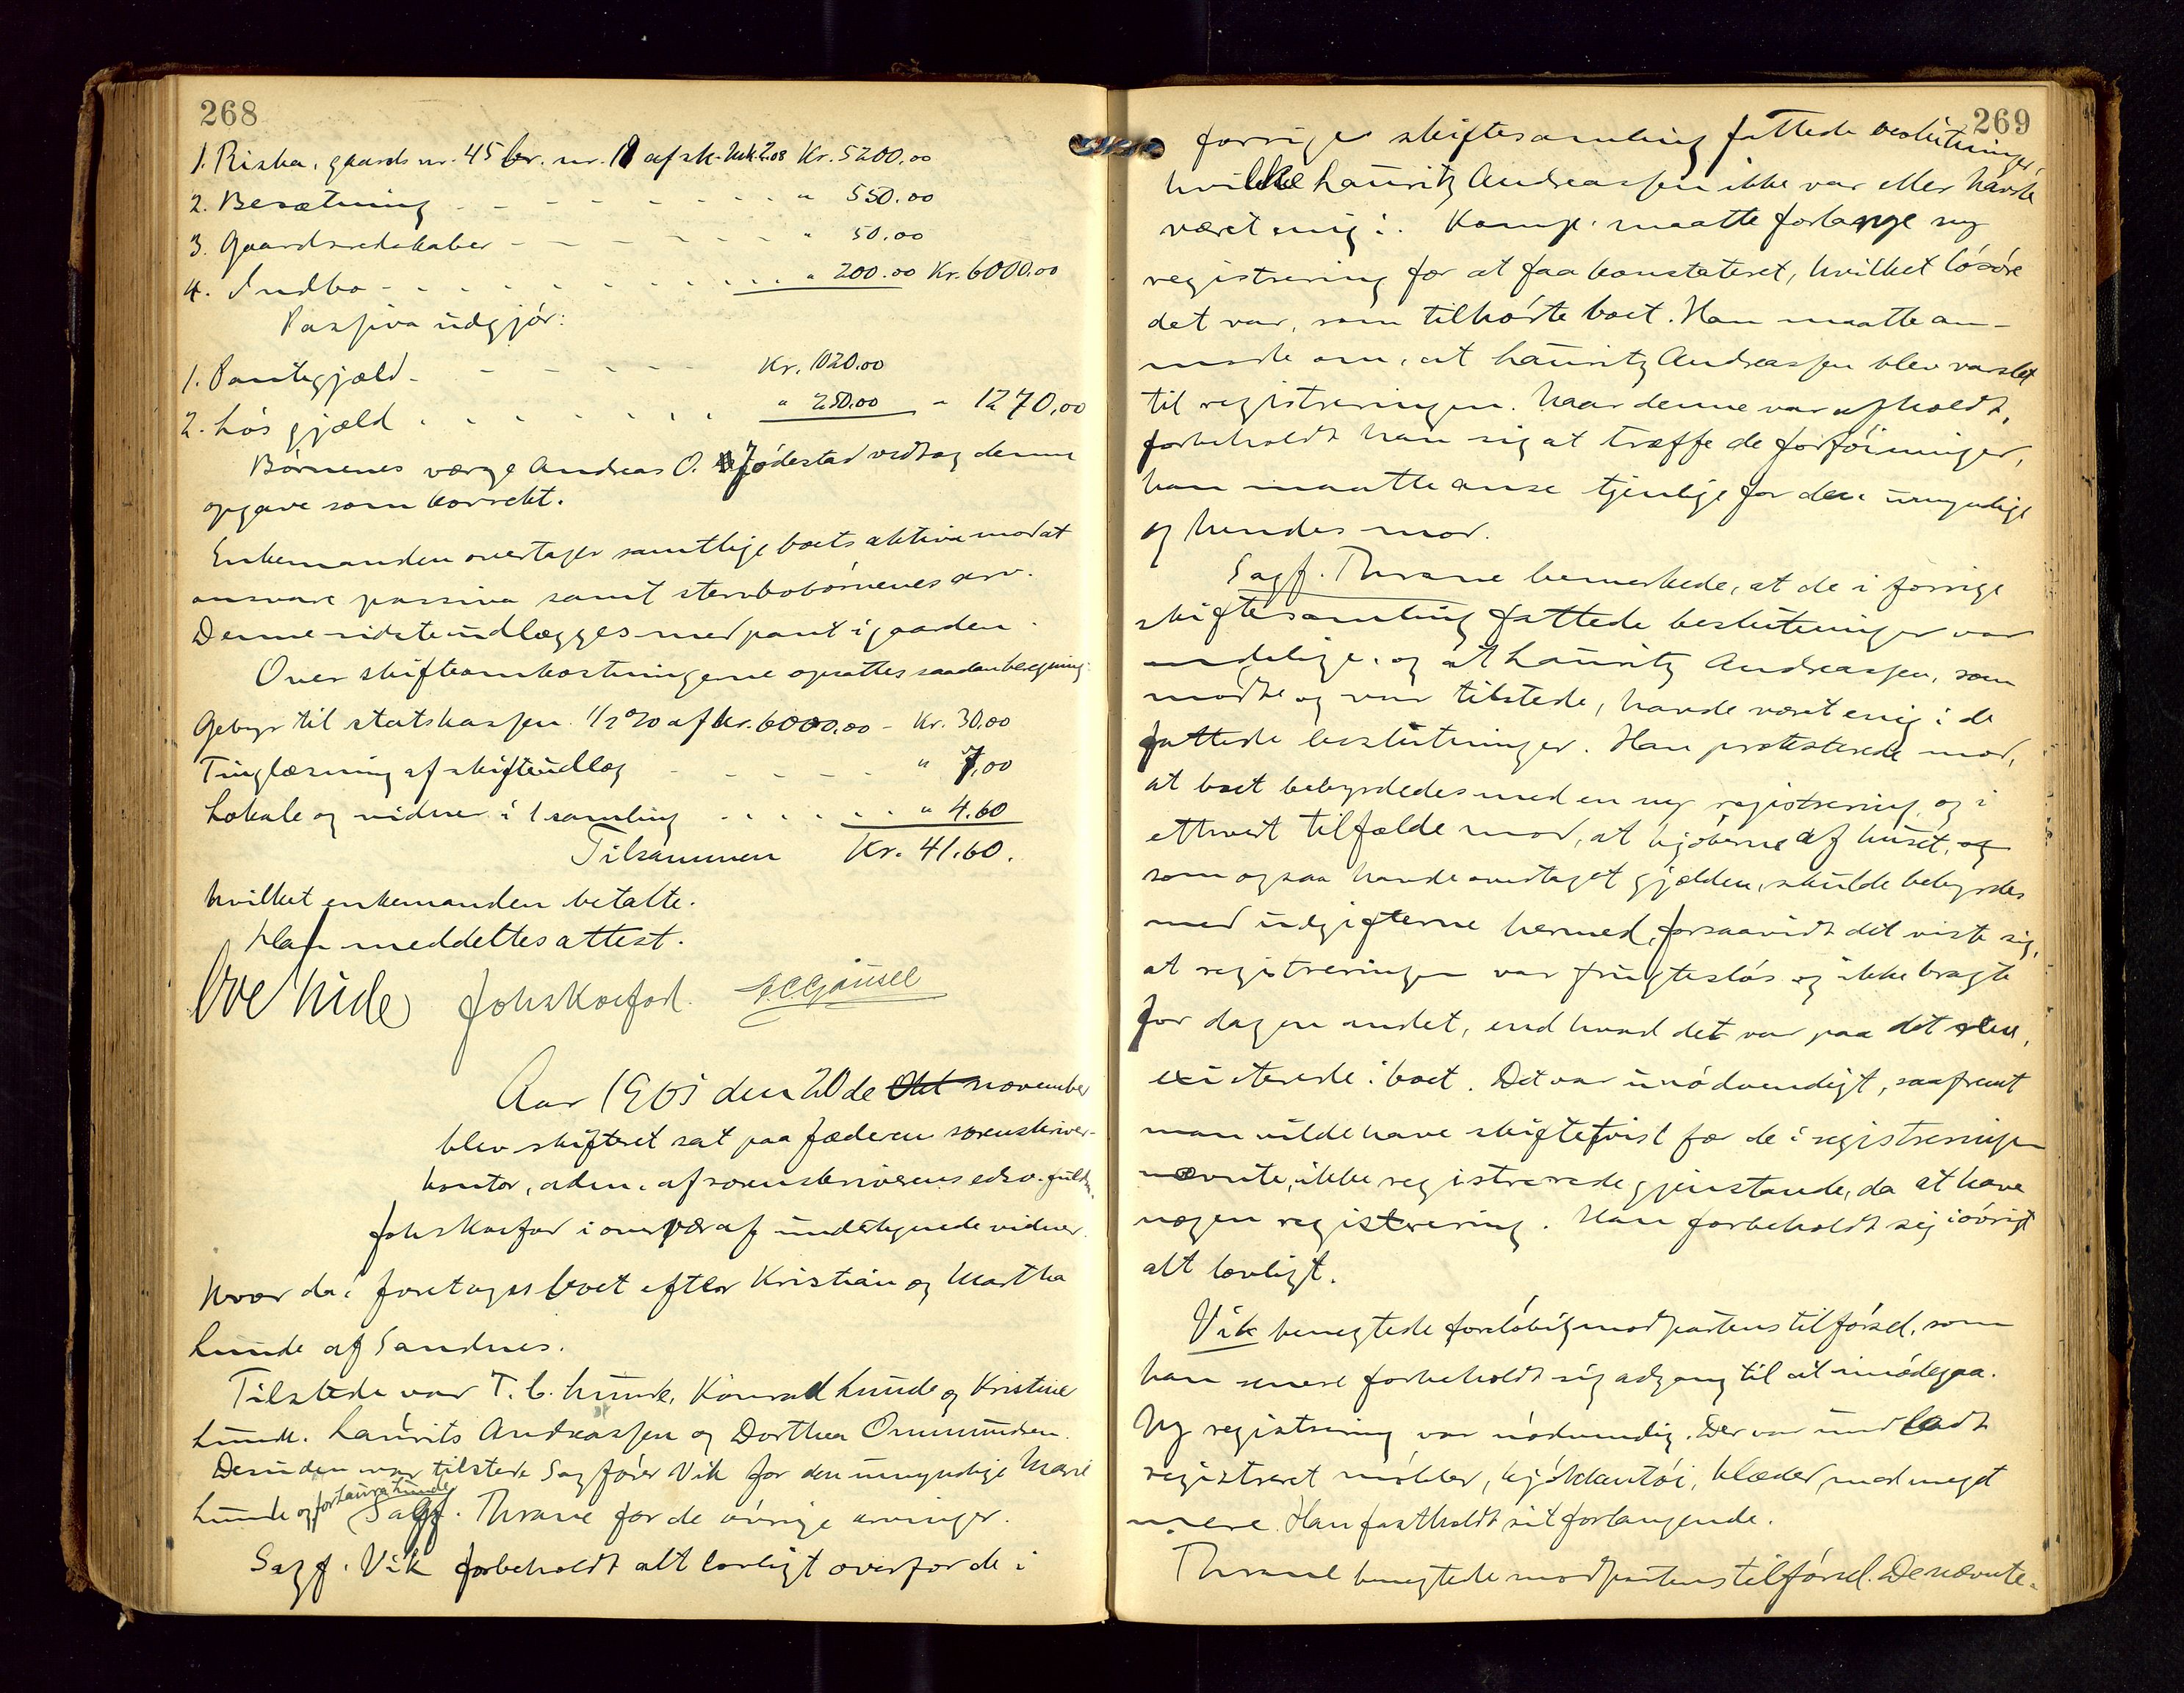 268
1. Riska, gaards nr. 45 br. nr. 18 af sk. mk. 2.08 Kr. 5200.00
2. Besætning - - - - - - - - " 550.00
3. Gaardsredskaber - - - - - - " 50.00
4. Indbo - - - - - - - - - " 200.00 Kr. 6000.00
Passiva udgjør:
1. Pantegjæld - - - - - Kr. 1020.00
2. Løs gjæld - - - - - - " 250.00 - " 1270,00
Børnenes værge Andreas O. Fjødestad vedtog denne
opgave som korrekt.
Enkemanden overtager samtlige boets aktiva mod at
ansvare passiva samt stervbobørnenes arv.
Denne sidste udlægges med pant i gaarden.
Over skifteomkostningerne opsattes saadan beregning:
Gebyr til statskassen 1/2 % af kr. 6000.00 - Kr. 30.00
Tinglæsning af skifteudlæg - - - - - " 7,00
Lokale og vidner i 1 samling - - - - - " 4.60
Tilsammen Kr. 41.60.
hvilket enkemanden betalte.
Han meddeltes attest.
Ove Hide Joh Skorfod.
Aar 1905 den 20de Okt november
blev skifteret sat paa Jæderen sorenskriver-
kontor, adm. af sorenskriverens edsv. fuldm.
Joh Skorfod i overvær af undertegnede vidner.
Hvor da: foretoges boet efter Kristian og Martha
Lunde af Sandnes.
Tilstede var T. C. Lunde, Konrad Lunde og Kristine
Lunde. Laurits Andreassen og Dorthea Ommundsen.
Desuden var tilstede Sagfører Vik for den umyndige Marie
Lunde og for Laura Lunde Sagf. Thrane for de øvrige arvinger.
Sagf. Vik forbeholdt alt lovligt overfor de i
269
forrige skiftesamling fattede beslutninger,
hvilke Lauritz Andreassen ikke var eller havde
været enig i. Komp. maatte forlange ny
registrering for at faa konstateret, hvilket løsøre
det var, som tilhørte boet. Han maatte an-
mode om, at Lauritz Andreassen blev varslet
til registreringen. Naar denne var afholdt,
forbeholdt han sig at træffe de forføininger,
han maatte anse tjenlige for den umyndige
og hendes mor.
Sagf. Thrane bemerkede, at de i forrige
skiftesamling fattede beslutninger var
endelige, og at Lauritz Andreassen, som
mødte og var tilstede, havde været enig i de
fattede beslutninger. Han protesterede mod,
at boet bebyrdedes med en ny registrering og i
ethvert tilfælde mod, at kjøberne af huset, og
som ogsaa havde overtaget gjælden, skulde bebyrdes
med udgifterne hermed, forsaavidt det viste sig,
at registreringen var frugtesløs og ikke bragte
for dagen andet, end hvad det var paa det rene,
existerede i boet. Det var unødvendigt, saafremt
man vilde have skiftetvist for de i registreringen
nævnte, ikke registrerede gjenstande, da at have
nogen registrering. Han forbeholdt sig iøvrigt
alt lovligt.
Vik benegtede foreløbig modpartens tilførsel, som
han senere forbeholdt sig adgang til at imødegaa.
Ny registrering var nødvendig. Der var undladt
registreret møbler, kjøkkentøi, klæder, med meget
mere. Han fastholdt sit forlangende.
Thrane benegtede modpartens tilførsel. De nævnte